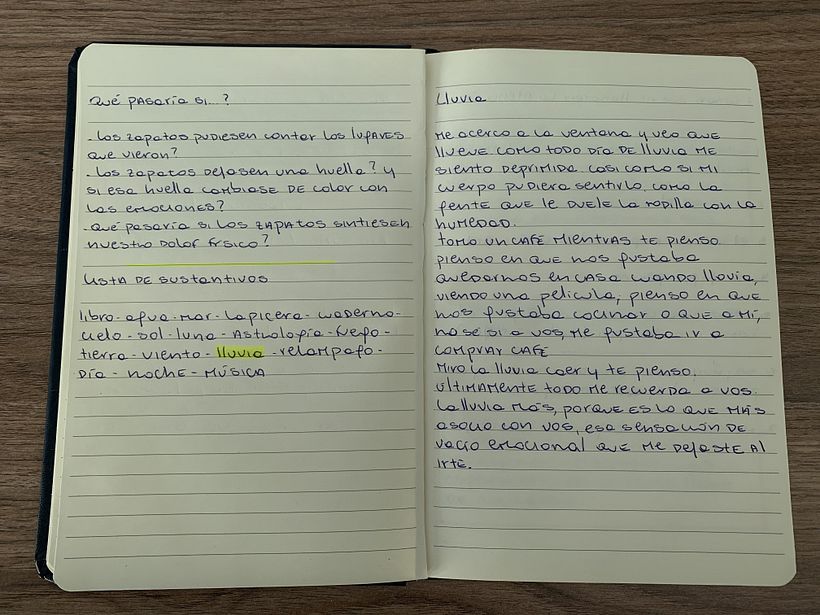 Qué pasaría si...?
- Los zapatos pudiesen contar los lugares
que vieron?
- Los zapatos dejasen una huella? y
si esa huella cambiase de color con
las emociones?
- Qué pasaría si los zapatos sintiesen
nuestro dolor físico?
Lista de sustantivos
libro - agua - mar - lapicera - cuaderno -
cielo - sol - luna - Astrología - fuego -
tierra - viento - lluvia - relampago -
Día - noche - música
Lluvia
Me acerco a la ventana y veo que
llueve. Como todo día de lluvia me
siento deprimida. Casi como si mi
cuerpo pudiera sentirlo, como la
gente que le duele la rodilla con la
humedad.
Tomo un café mientras te pienso
pienso en que nos gustaba
quedarnos en casa cuando llovía,
viendo una película, pienso en que
nos gustaba cocinar o que a mí,
no sé si a vos, me gustaba ir a
comprar café
Miro la lluvia caer y te pienso.
Últimamente todo me recuerda a vos.
La lluvia más, porque es lo que más
asocio con vos, esa sensación de
vacío emocional que me dejaste al
irte.